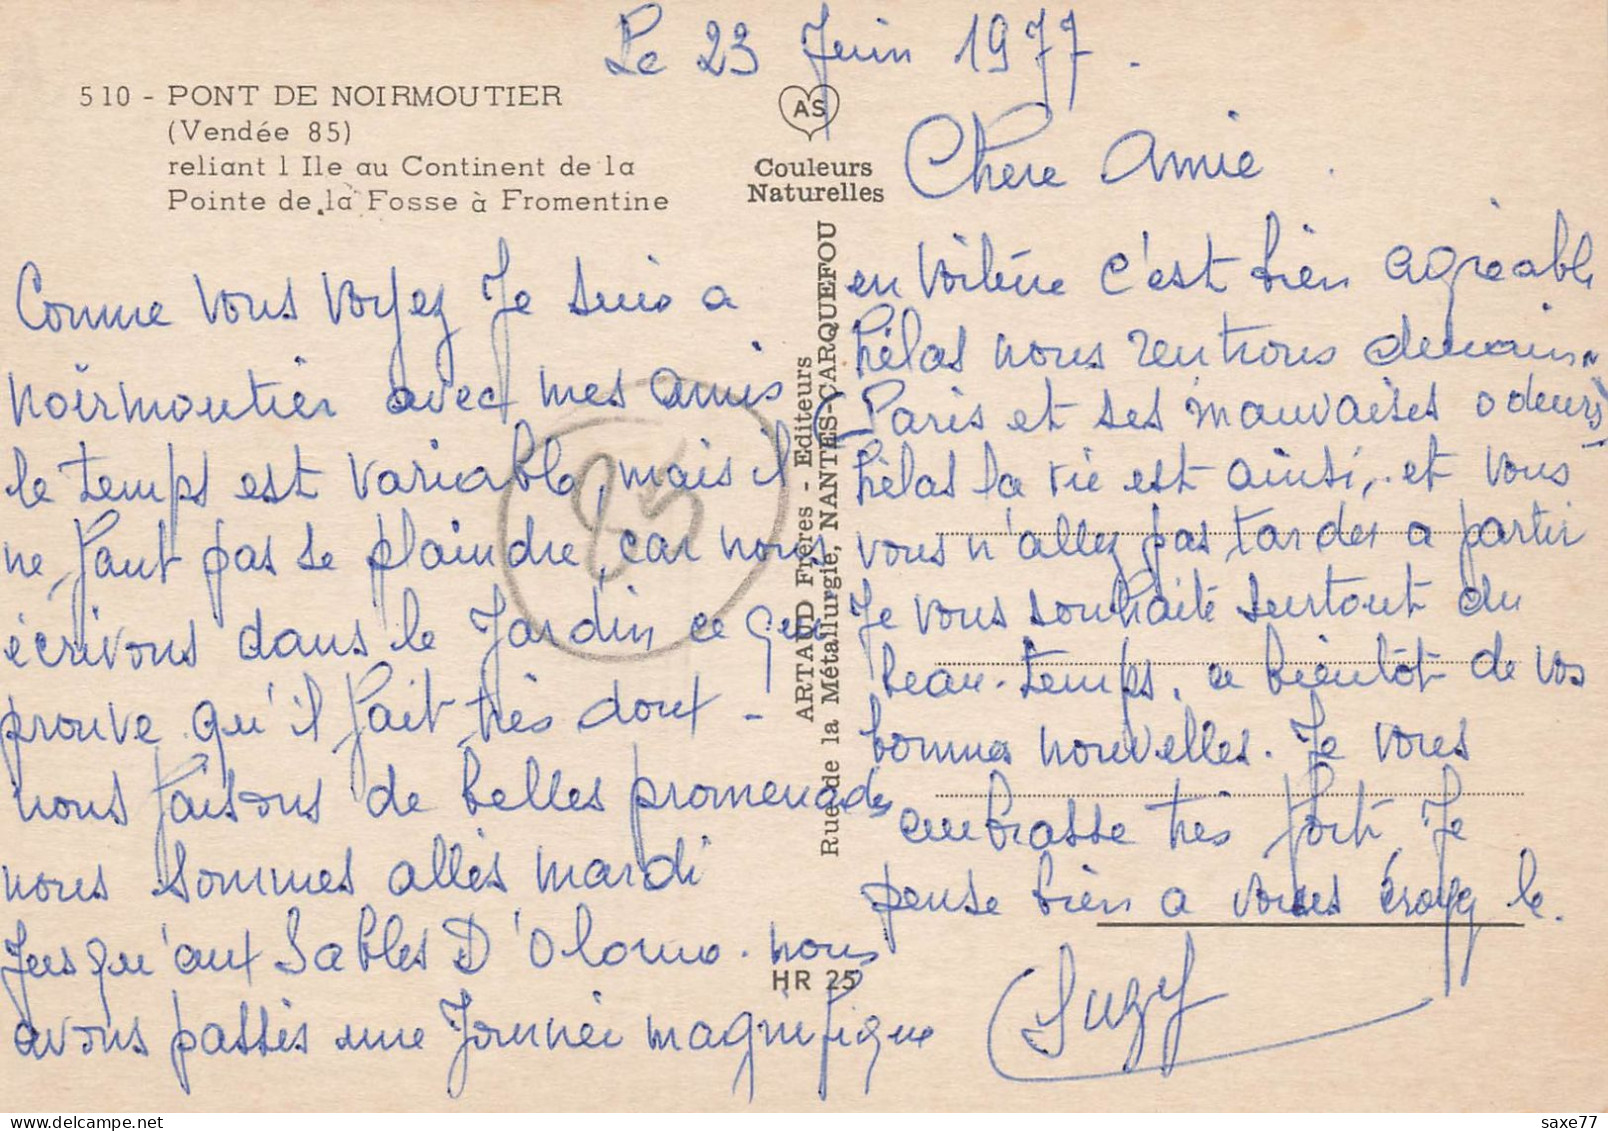 Le 23 Juin 1977.
510 - PONT DE NOIRMOUTIER
(Vendée 85)
reliant l Ile au Continent de la
Pointe de la Fosse à Fromentine
AS
Couleurs
Naturelles
ARTAUD Frères - Editeurs
Rue de la Métallurgie, NANTES-CARQUEFOU
HR 25
85
Chere Amie.
Comme vous voyez Je suis a
Noirmoutier avec mes amis
le temps est variable, mais il
ne faut pas se plaindre, car nous
écrivons dans le Jardin ce qui
prouve qu'il fait très doux -
nous faisons de belles promenades
nous sommes allés mardi
Jusqu'aux Sables D'Olonne. nous
avons passés une Journée magnifique
en voiture c'est bien agréable
hélas nous rentrons demain
Paris et ses mauvaises odeurs
hélas la vie est ainsi, et vous
vous n'allez pas tarder a partir
Je vous souhaite surtout du
beau-temps. a bientôt de vos
bonnes nouvelles. Je vous
embrasse très fort, Je
pense bien a vous croyez le.
Suzy
saxe77